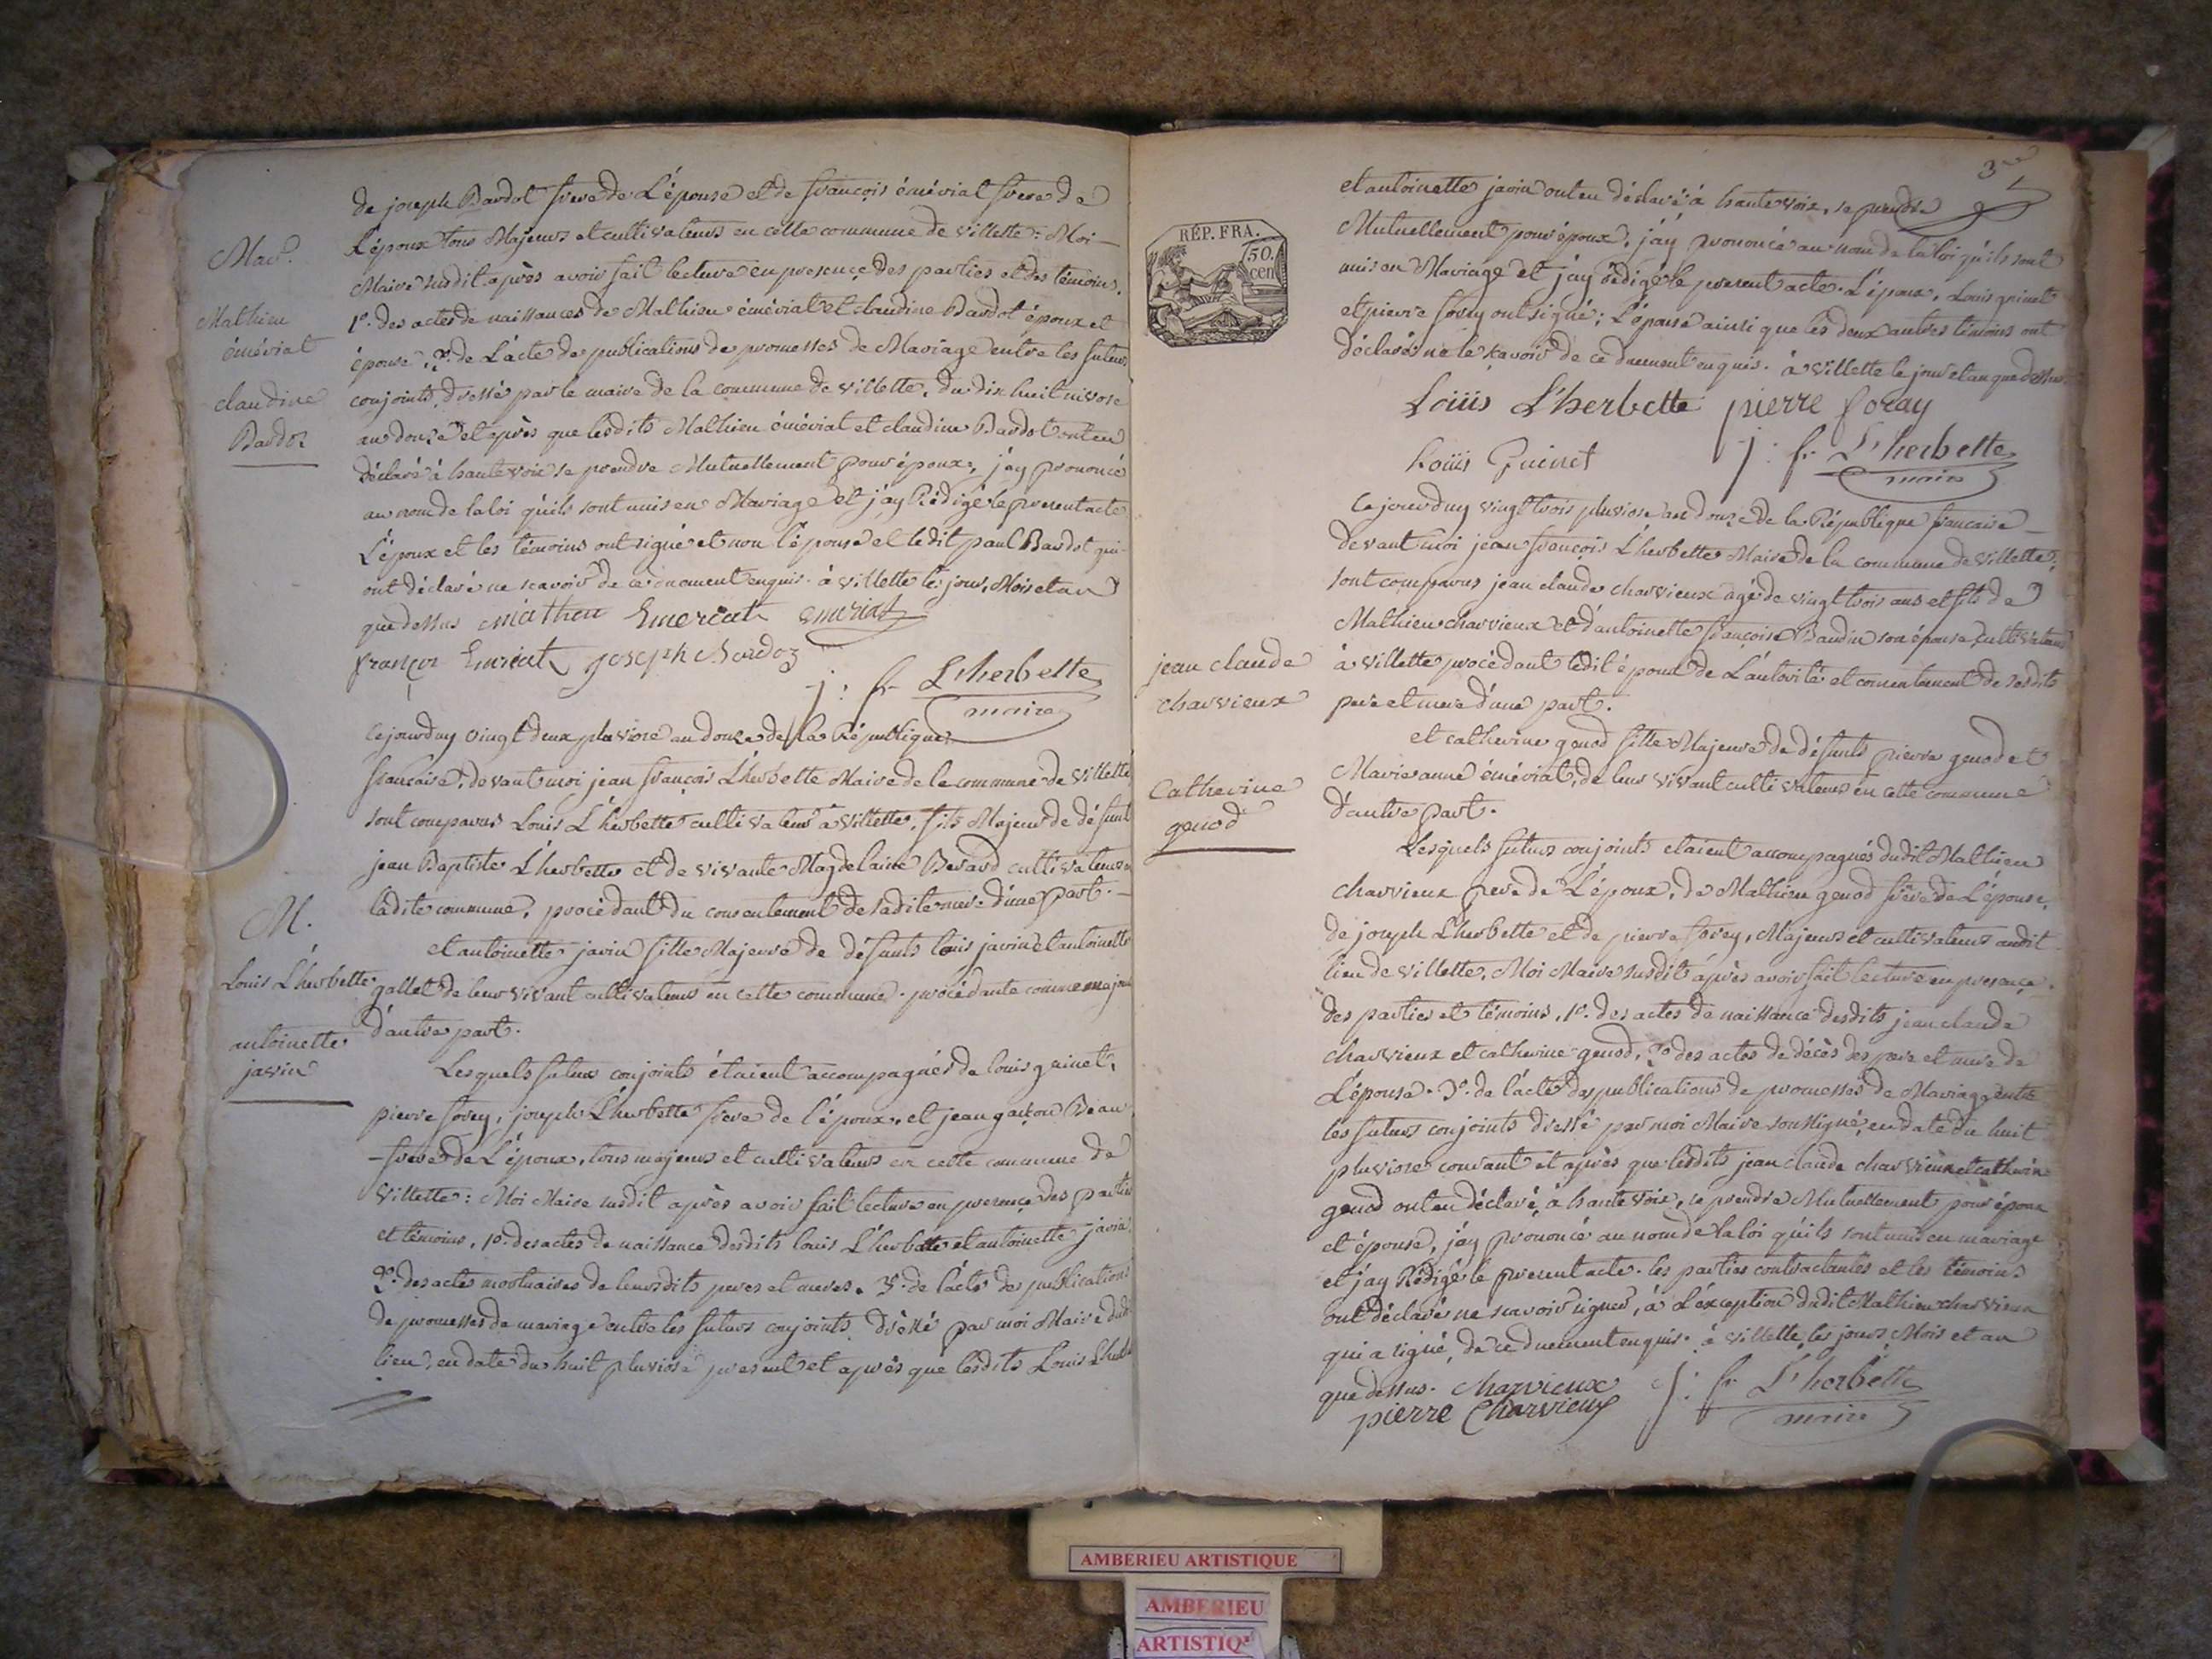 de joseph Bardot frere de L'épouse et de françois émériat frere de
L'époux tous Majeurs et cultivateurs en cette commune de villette: Moi
Maire susdit après avoir fait lecture en presençe des parties et des témoins,
1°. des actes de naissances de Mathieu émériat et claudine Bardot époux et
épouse, 2°. de L'acte de publications de promesses de Mariage entre les futurs
conjoints, dressé par le maire de la commune de villette, du dix huit nivose
an douze et après que lesdits Mathieu émériat et claudine Bardot ont eu
déclaré à haute voix se prendre Mutuellement pour époux, j'ay prononcé
au nom de la loi qu'ils sont unis en Mariage et j'ay Rédigé le present acte
L'époux et les témoins ont signé et non l'épouse et ledit paul Bardot qui
ont déclaré ne scavoir de ce enquis. à villette les jour, Mois et an
que dessus mathieu Emeriat emeriat
françoi Emriat joseph Bardoz
j: fr L'herbette
maire
Mar.
Mathieu
émériat
claudine
Bardoz
Cejourduy vingt deux pluviose an douze de la République
francaise, devant moi jean françois L'herbette Maire de la commune de villette
sont comparus Louis L'herbette cultivateur à villette, fils Majeur de défunt
jean Baptiste L'herbette et de vivante Magdelaine Berard cultivateurs
ladite commune, procédant du consentement de sadite mere d'une part.
et antoinette javin fille Majeure de défunts louis javin et antoinette
gallet de leur vivant cultivateurs en cette commune. procédante comme majeure
d'autre part.
M.
Louis L'herbette
antoinette
javin
Lesquels futurs conjoints étaient accompagnés de louis guinet,
pierre forey, joseph L'herbette frere de l'époux, et jean Beau
-frere de L'époux, tous majeurs et cultivateurs en cette commune de
villette: Moi Maire susdit après avoir fait lecture en presençe des parties
et témoins, 1°. des actes de naissance desdits louis L'herbette et antoinette javin
2°. des actes mortuaires de leursdits peres et meres. 3°. de l'acte des publications
de promesses de mariage entre les futurs conjoints, dréssé par moi Maire dudit
lieu, en date du huit pluviose present et après que lesdits Louis L'herbette
3
et antoinette javin ont eu déclaré à haute voix, se prendre
Mutuellement pour époux, j'ay prononcé au nom de la loi qu'ils sont
unis en Mariage et j'ay rédigé le present acte. L'époux, Louis guinet
et pierre forey ont signé; L'épouse ainsi que les deux autres témoins ont
déclarés ne le scavoir de ce duement enquis. à villette le jour et an que dessus
RÉP. FRA.
50
cen
Loüis L'herbette pierre foray
Loüis Guinet j: fr L'herbette
maire
Cejourduy vingt trois pluviose an douze de la République francaise
devant moi jean françois L'herbette Maire de la commune de villette;
sont comparus jean claude charvieux agé de vingt trois ans et fils de
Mathieu charvieux et d'antoinette françoise Baudin son épouse, cultivateurs
à villette procédant ledit époux de L'autorité et consentement de sesdits
pere et mere d'une part.
jean claude
charvieux
et catherine genod fille Majeure de défunts pierre genod et
Marie anne émériat, de leur vivant cultivateurs en cette commune
d'autre part.
Catherine
genod
Lesquels futurs conjoints etaient accompagnés dudit Mathieu
charvieux pere de L'époux, de Mathieu genod frere de L'épouse,
de joseph L'herbette et de pierre forey, Majeurs et cultivateurs audit
lieu de villette, Moi Maire susdit après avoir fait lecture en presençe
des parties et témoins, 1°. des actes de naissance desdits jean claude
charvieux et catherine genod, 2°. des actes de décès des pere et mere de
L'épouse. 3°. de l'acte des publications de promesses de Mariage entre
les futurs conjoints dressé par moi Maire soussigné, en date du huit
pluviose courant et après que lesdits jean claude charvieux et catherine
genod ont eu déclaré à haute voix, se prendre Mutuellement pour époux
et épouse, j'ay prononcé au nom de la loi qu'ils sont unis en mariage
et j'ay Rédigé le present acte. les parties contractantes et les témoins
ont déclarés ne scavoir signer, à L'éxception dudit Mathieu charvieux
qui a signé, de ce duement enquis. à villette, les jours, Mois et an
que dessus. charvieux j: fr L'herbette
pierre Charvieux maire
AMBERIEU ARTISTIQUE
AMBERIEU
ARTISTIQ